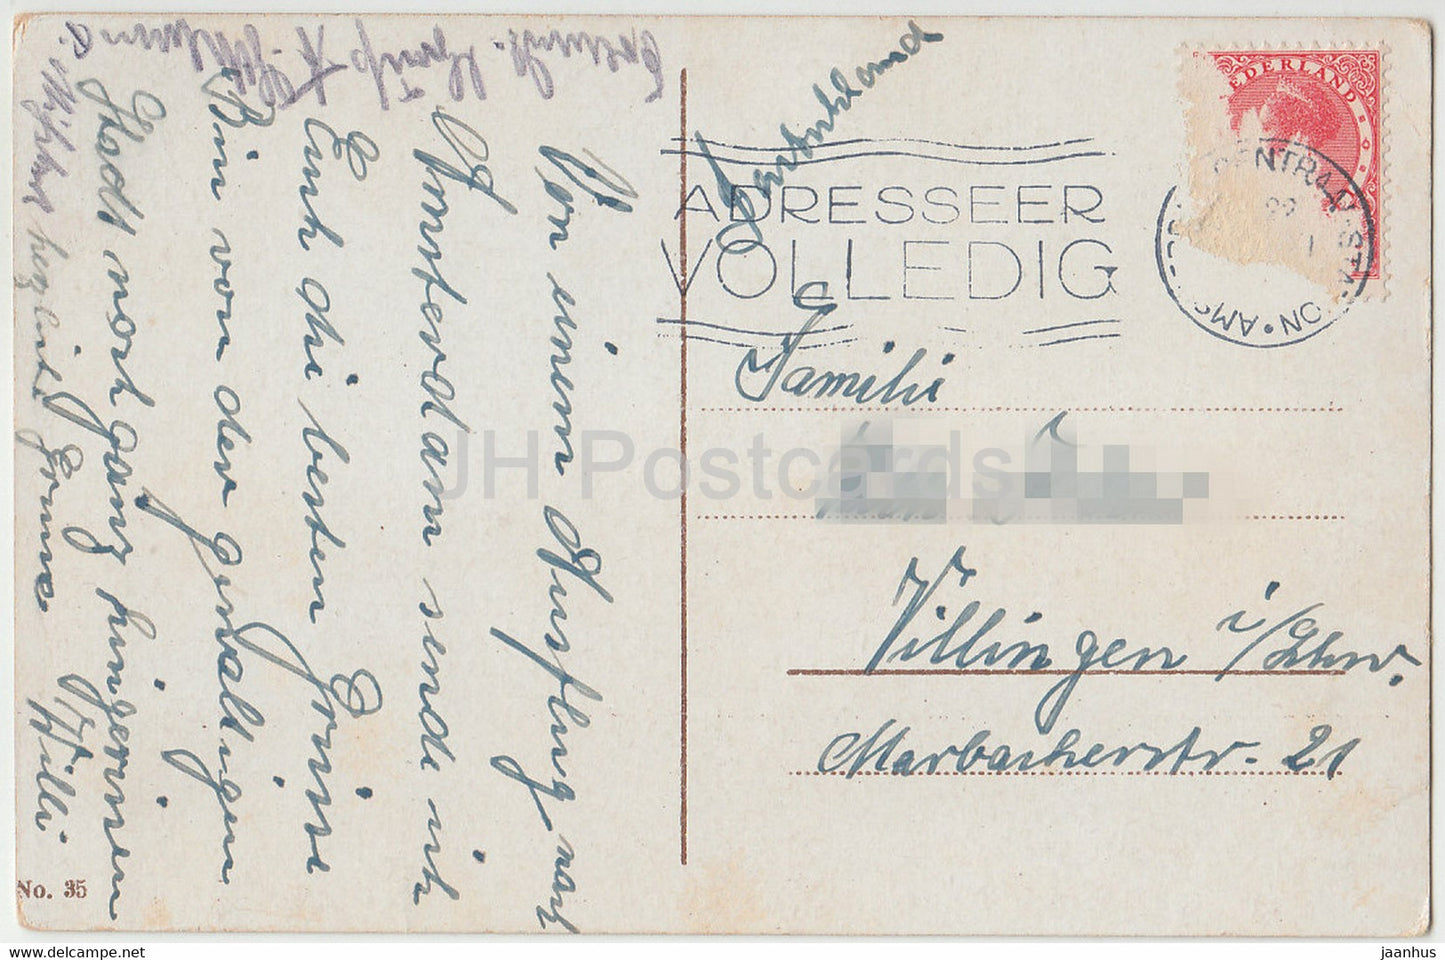 Von einem Ausflug nach
Amsterdam sende ich
Euch die besten Grüsse
Bin von der gewaltigen
Stadt noch ganz hingerissen
Herzliche Grüsse Willi
Deutschland
NEDERLAND
ADRESSEER
VOLLEDIG
AMS CENTRAAL STATION
Familie
Villingen i/Schw.
Marbacherstr. 21
No. 35
JH Postcards
www.delcampe.net
jaanhus